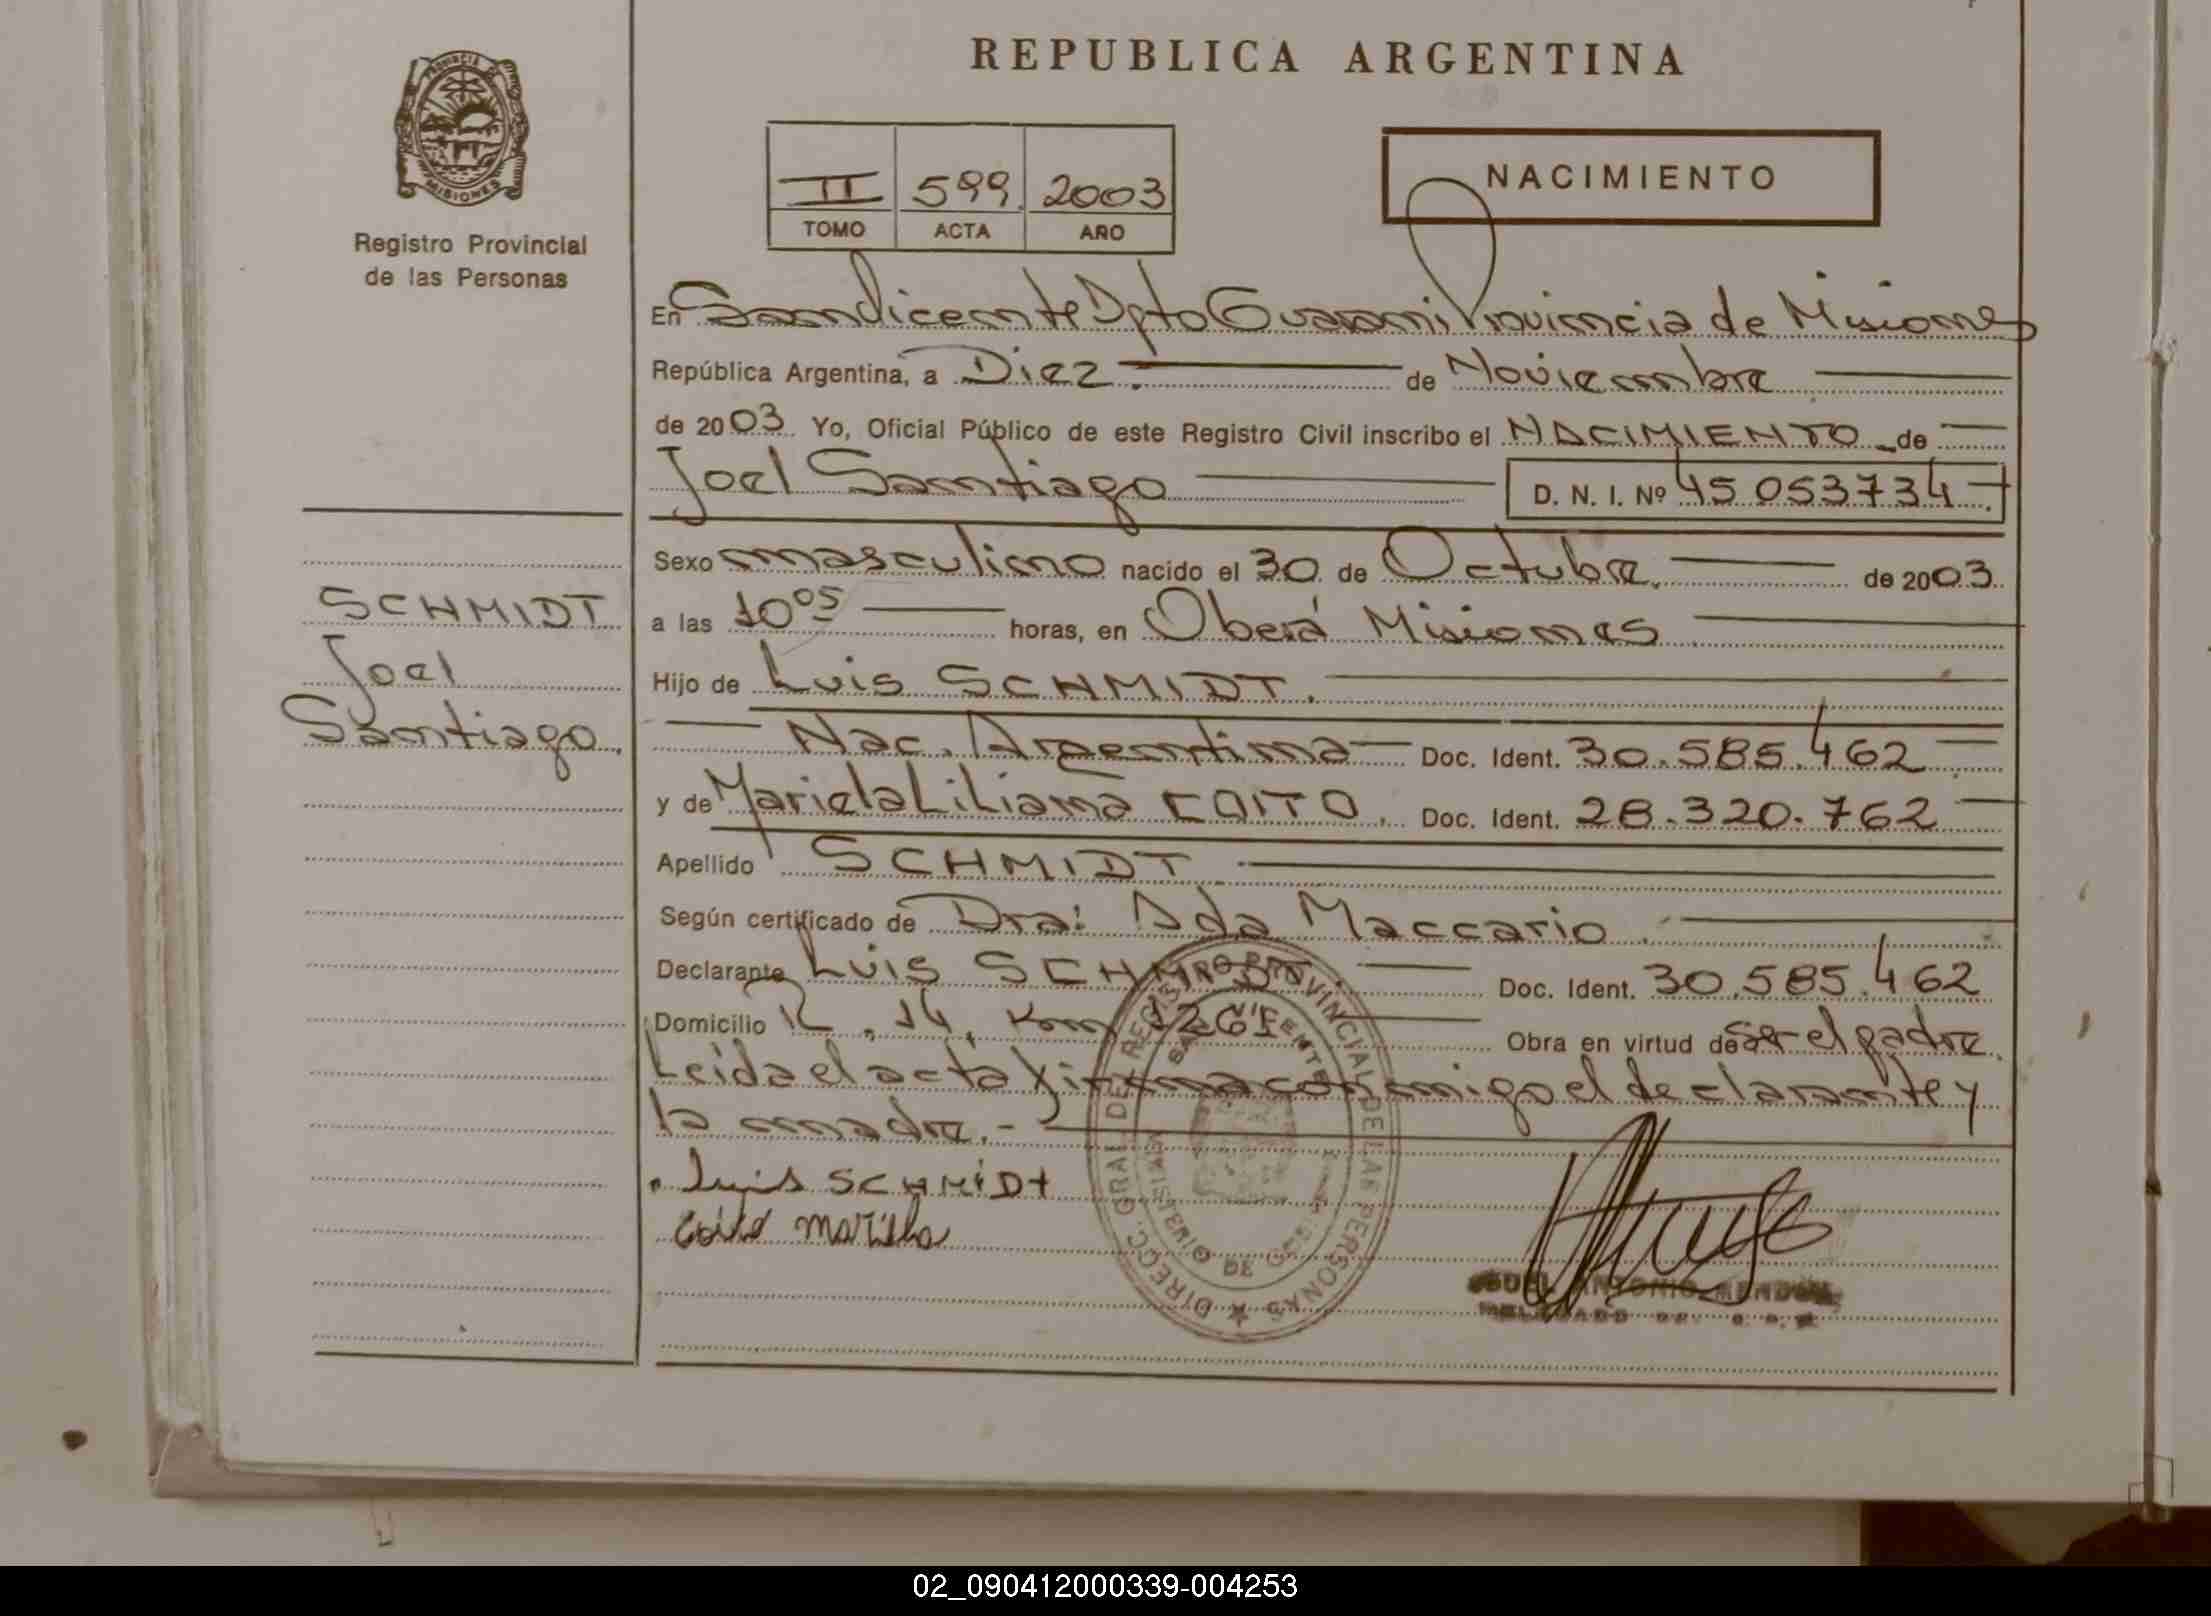 REPUBLICA ARGENTINA
PROVINCIA DE MISIONES
Registro Provincial
de las Personas
II 599. 2003
TOMO ACTA AÑO
NACIMIENTO
En San Vicente Dpto Guarani Provincia de Misiones
República Argentina, a Diez. de Noviembre
de 2003. Yo, Oficial Público de este Registro Civil inscribo el NACIMIENTO de
Joel Santiago D. N. I. Nº 45 053734
Sexo masculino nacido el 30 de Octubre. de 2003
a las 10 05 horas, en Oberá Misiones
Hijo de Luis SCHMIDT.
Nac. Argentina Doc. Ident. 30.585.462
y de Mariela Liliana COITO. Doc. Ident. 28.320.762
Apellido SCHMIDT
Según certificado de Dra: Ada Maccario
Declarante Luis SCHMIDT Doc. Ident. 30.585.462
Domicilio R. 14. Km 1261 Obra en virtud de ser el padre.
Leida el acta firma conmigo el declarante y
la madre.-
Luis SCHMIDT
Coito Mariela
SCHMIDT
Joel
Santiago.
DIRECC. GRAL. DEL REGISTRO PROVINCIAL DE LAS PERSONAS
SAN VICENTE
ANTONIO
02_090412000339-004253